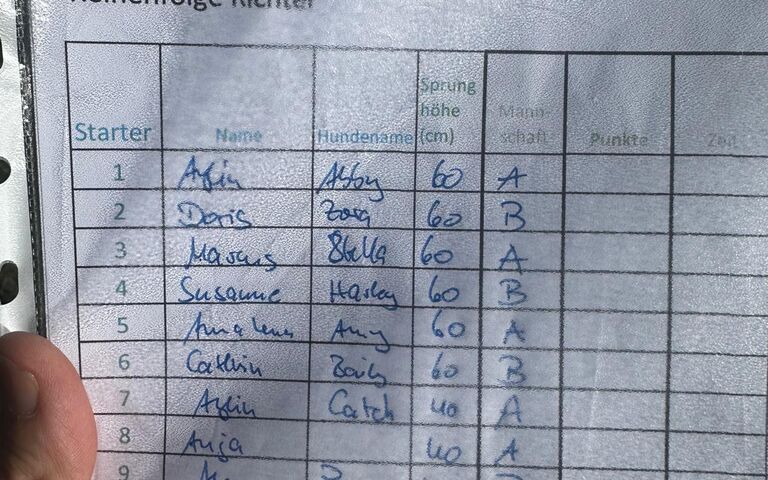 Reihenfolge Richter
Starter Name Hundename Sprung höhe (cm) Mann- schaft Punkte Zeit
1 Aylin Abby 60 A
2 Doris Zora 60 B
3 Marcus Stella 60 A
4 Susanne Harley 60 B
5 Amy 60 A
6 Cathrin 60 B
7 Aylin Catch 40 A
8 Anja 40 A
9